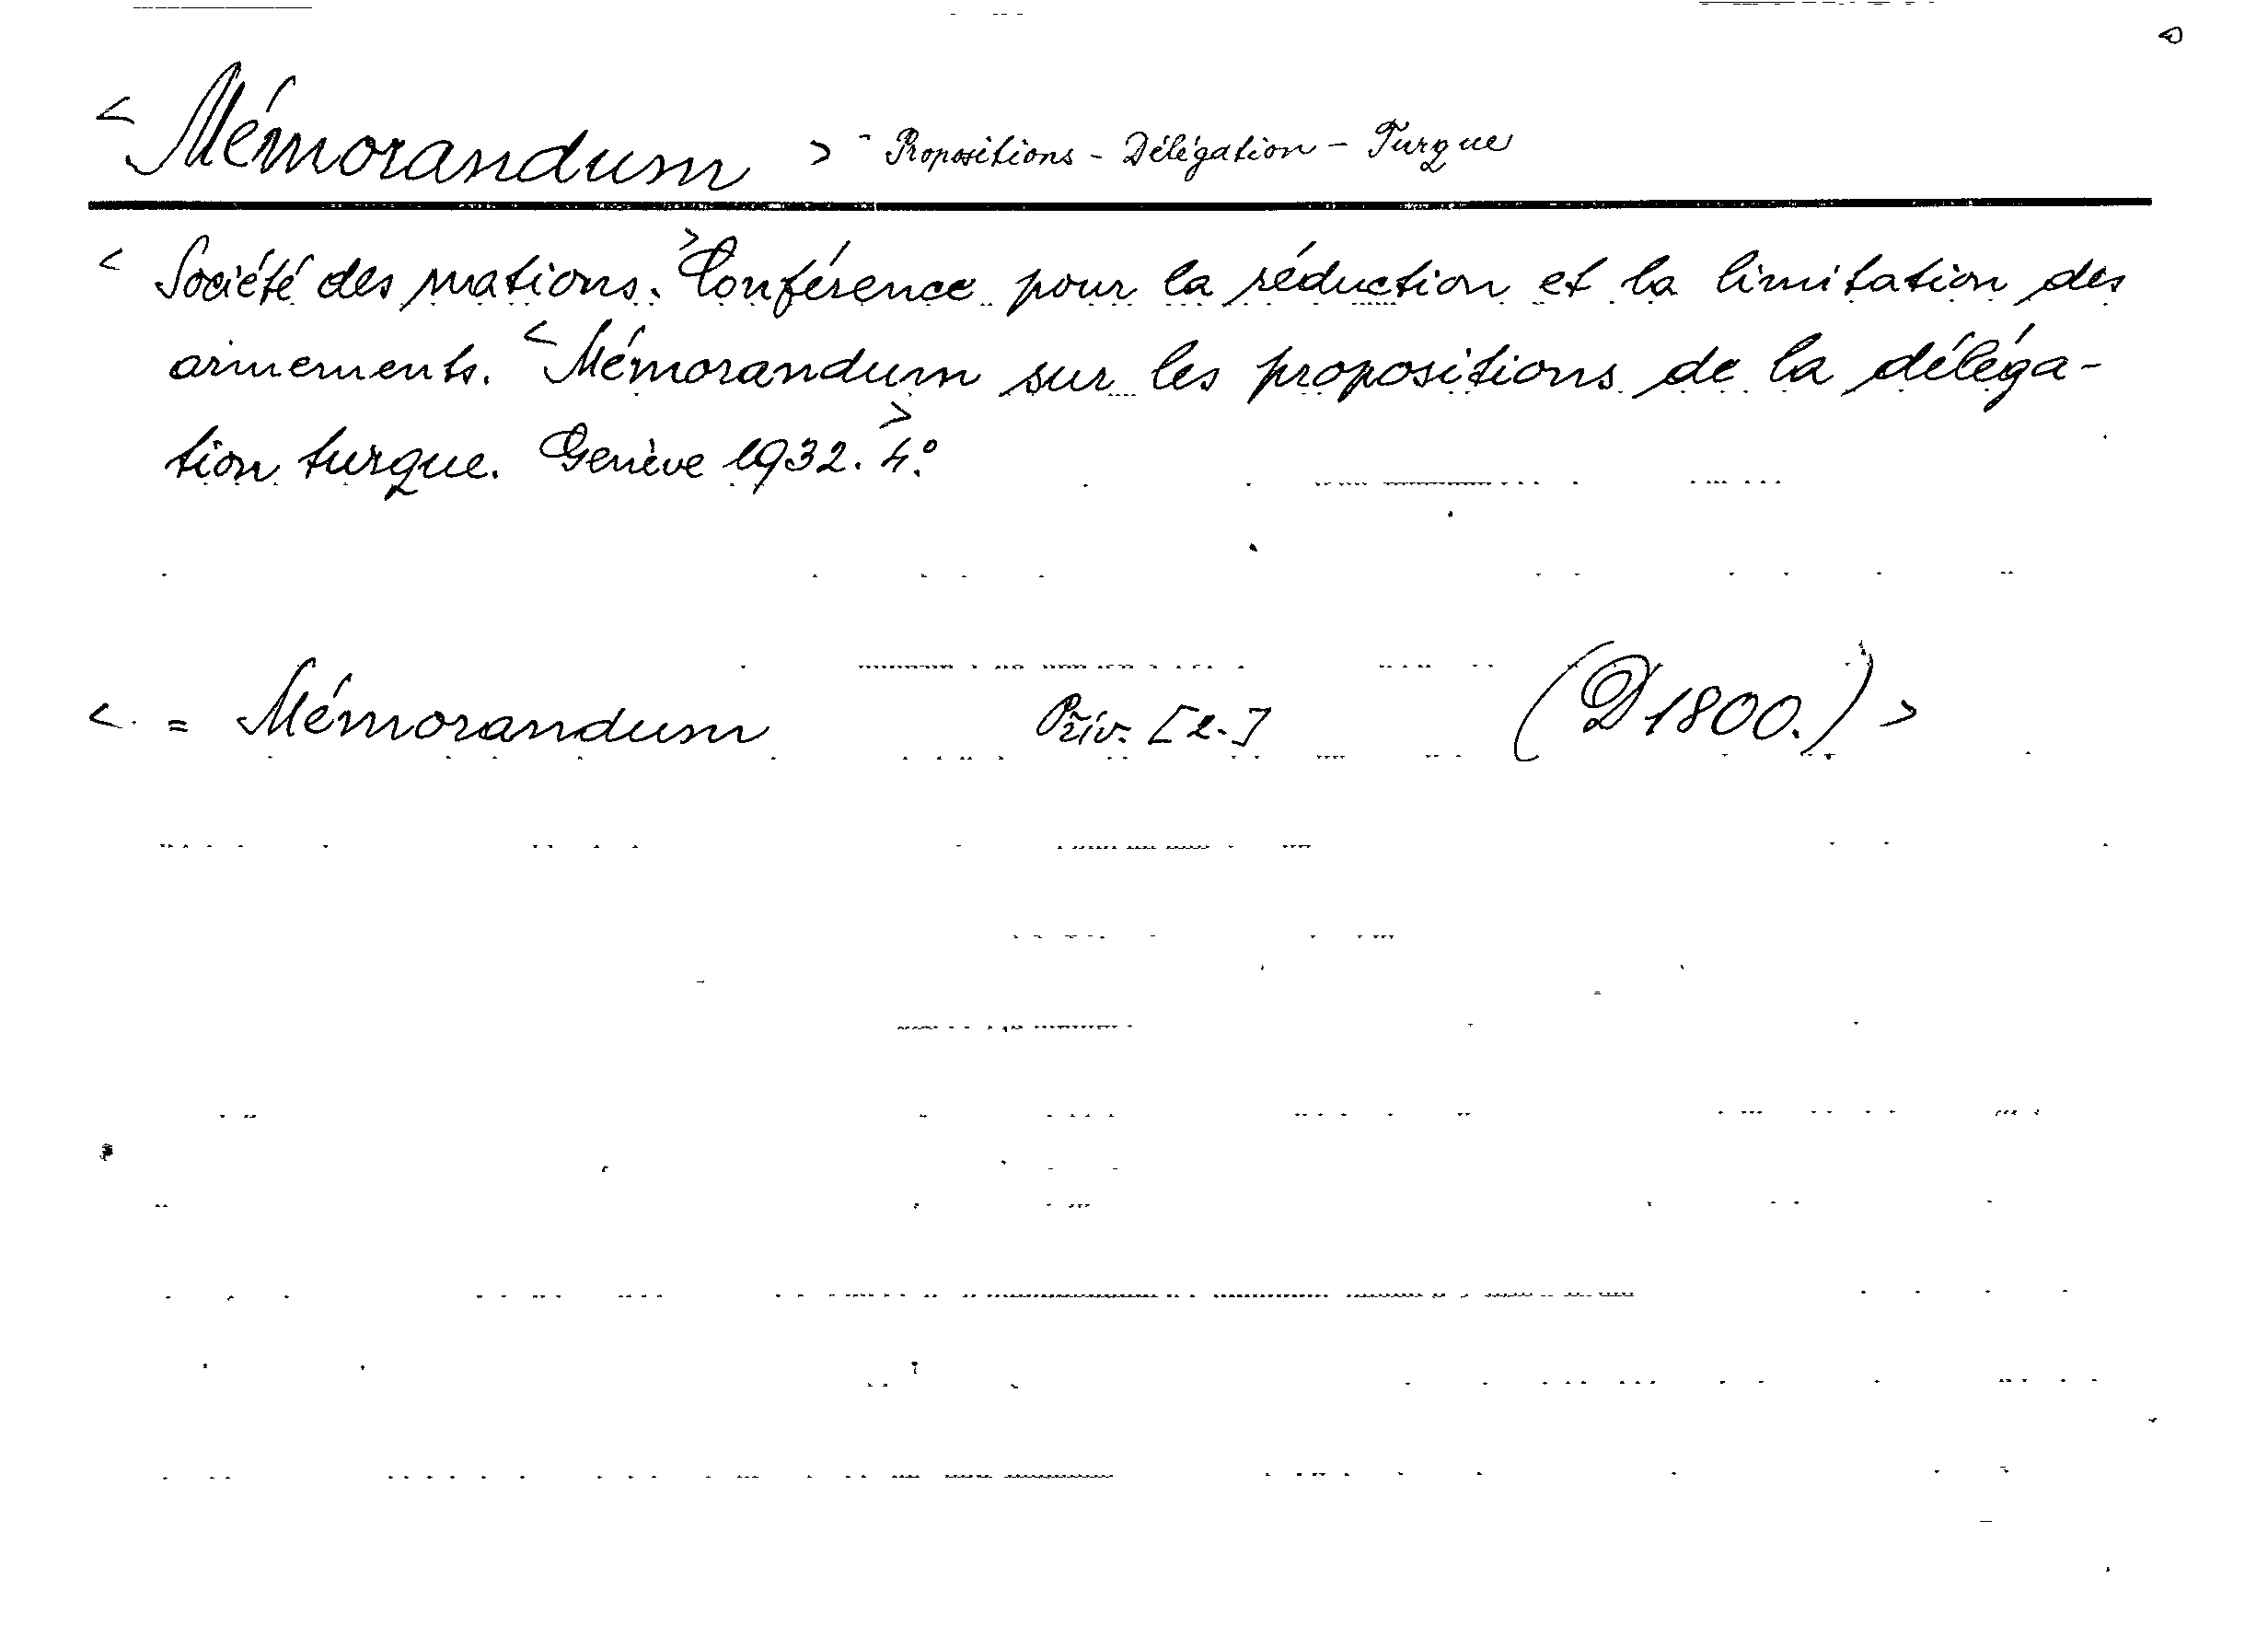 < Mémorandum > - Propositions - Délégation - Turque
< Société des nations. > Conférence pour la réduction et la limitation des
armements. < Mémorandum sur les propositions de la déléga-
tion turque. Genève 1932. > 4.°
< = Mémorandum Priv. [2.] (D1800.) >